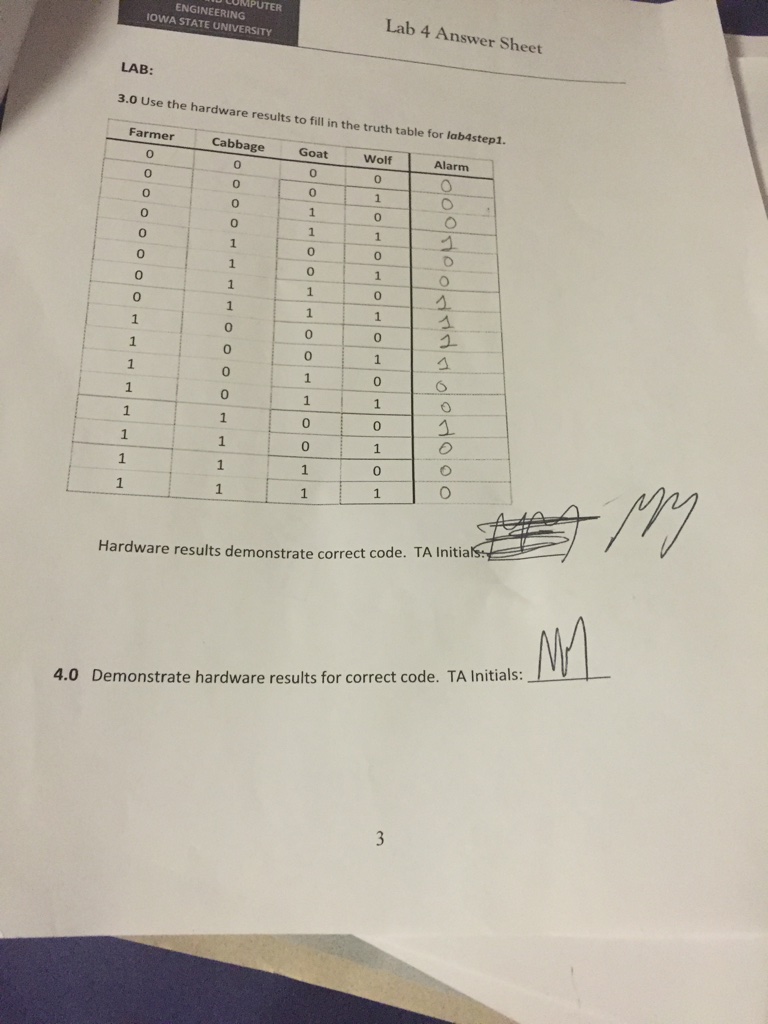 COMPUTER
ENGINEERING
IOWA STATE UNIVERSITY
Lab 4 Answer Sheet
LAB:
3.0 Use the hardware results to fill in the truth table for lab4step1.
Farmer Cabbage Goat Wolf Alarm
0 0 0 0 0
0 0 0 1 0
0 0 1 0 0
0 0 1 1 1
0 1 0 0 0
0 1 0 1 0
0 1 1 0 1
0 1 1 1 1
1 0 0 0 1
1 0 0 1 1
1 0 1 0 0
1 0 1 1 0
1 1 0 0 1
1 1 0 1 0
1 1 1 0 0
1 1 1 1 0
Hardware results demonstrate correct code. TA Initials:
4.0 Demonstrate hardware results for correct code. TA Initials:
3